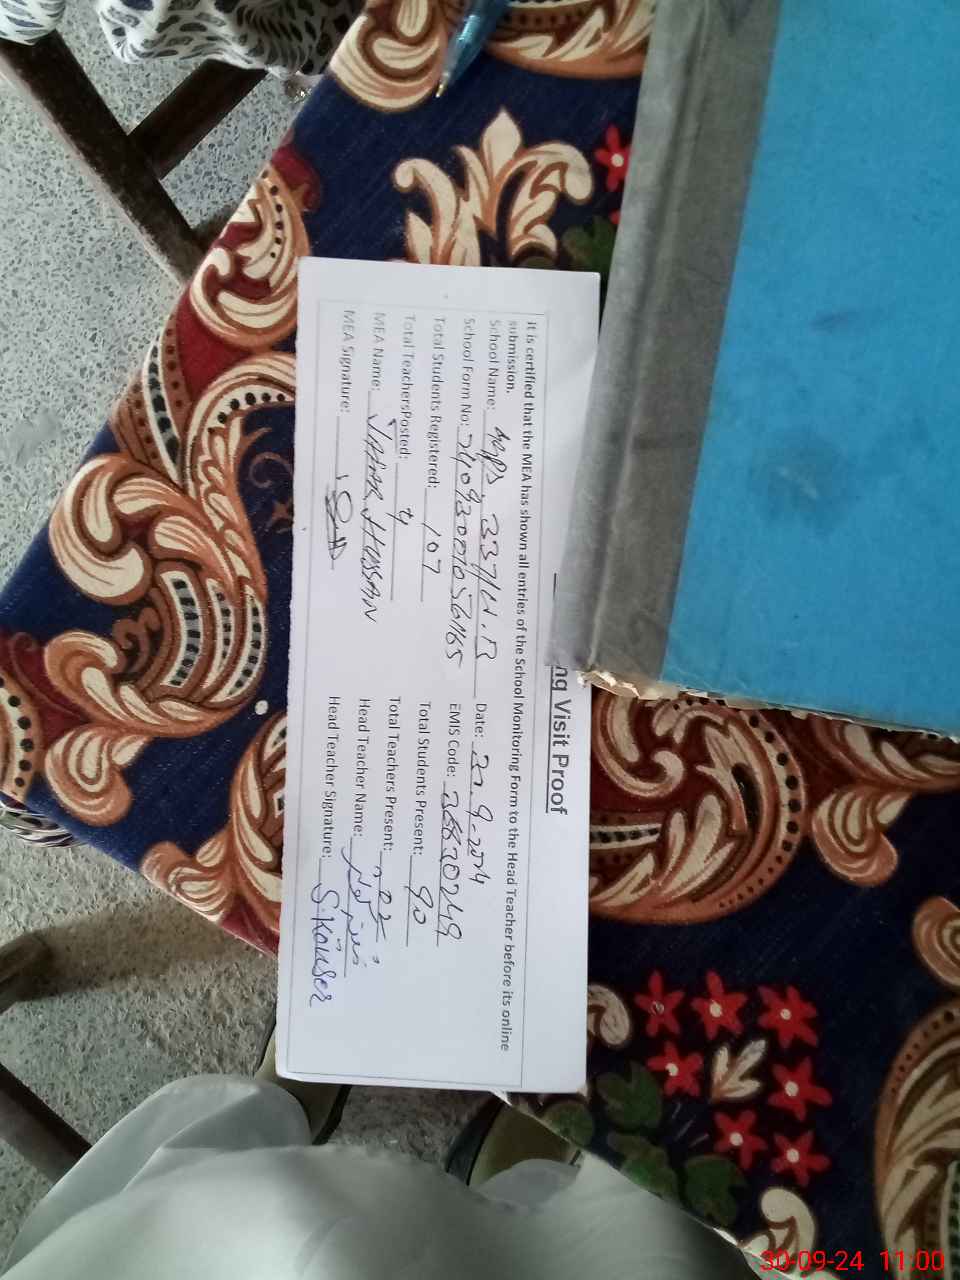 ng Visit Proof
It is certified that the MEA has shown all entries of the School Monitoring Form to the Head Teacher before its online
submission.
School Name: 337/W.B Date: 30.9.2024
School Form No: EMIS Code:
Total Students Registered: 107 Total Students Present: 90
Total TeachersPosted: 4 Total Teachers Present: 02
MEA Name: JAFAR HUSSAN Head Teacher Name:
MEA Signature: Head Teacher Signature: S. Kouser
30-09-24 11:00